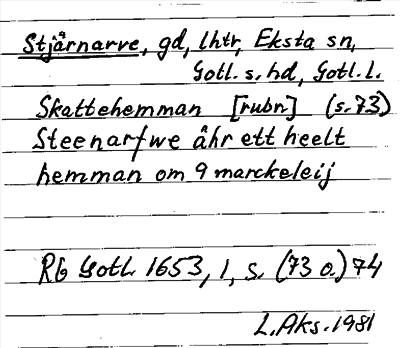 Stjärnarve, gd, lhtr, Eksta sn,
Gotl. s. hd, Gotl. l.
Skattehemman [rubr] (s. 73)
Steenarfwe ähr ett heelt
hemman om 9 marckeleij
RG Gotl. 1653, 1, s. (73 o.) 74
L. Aks. 1981